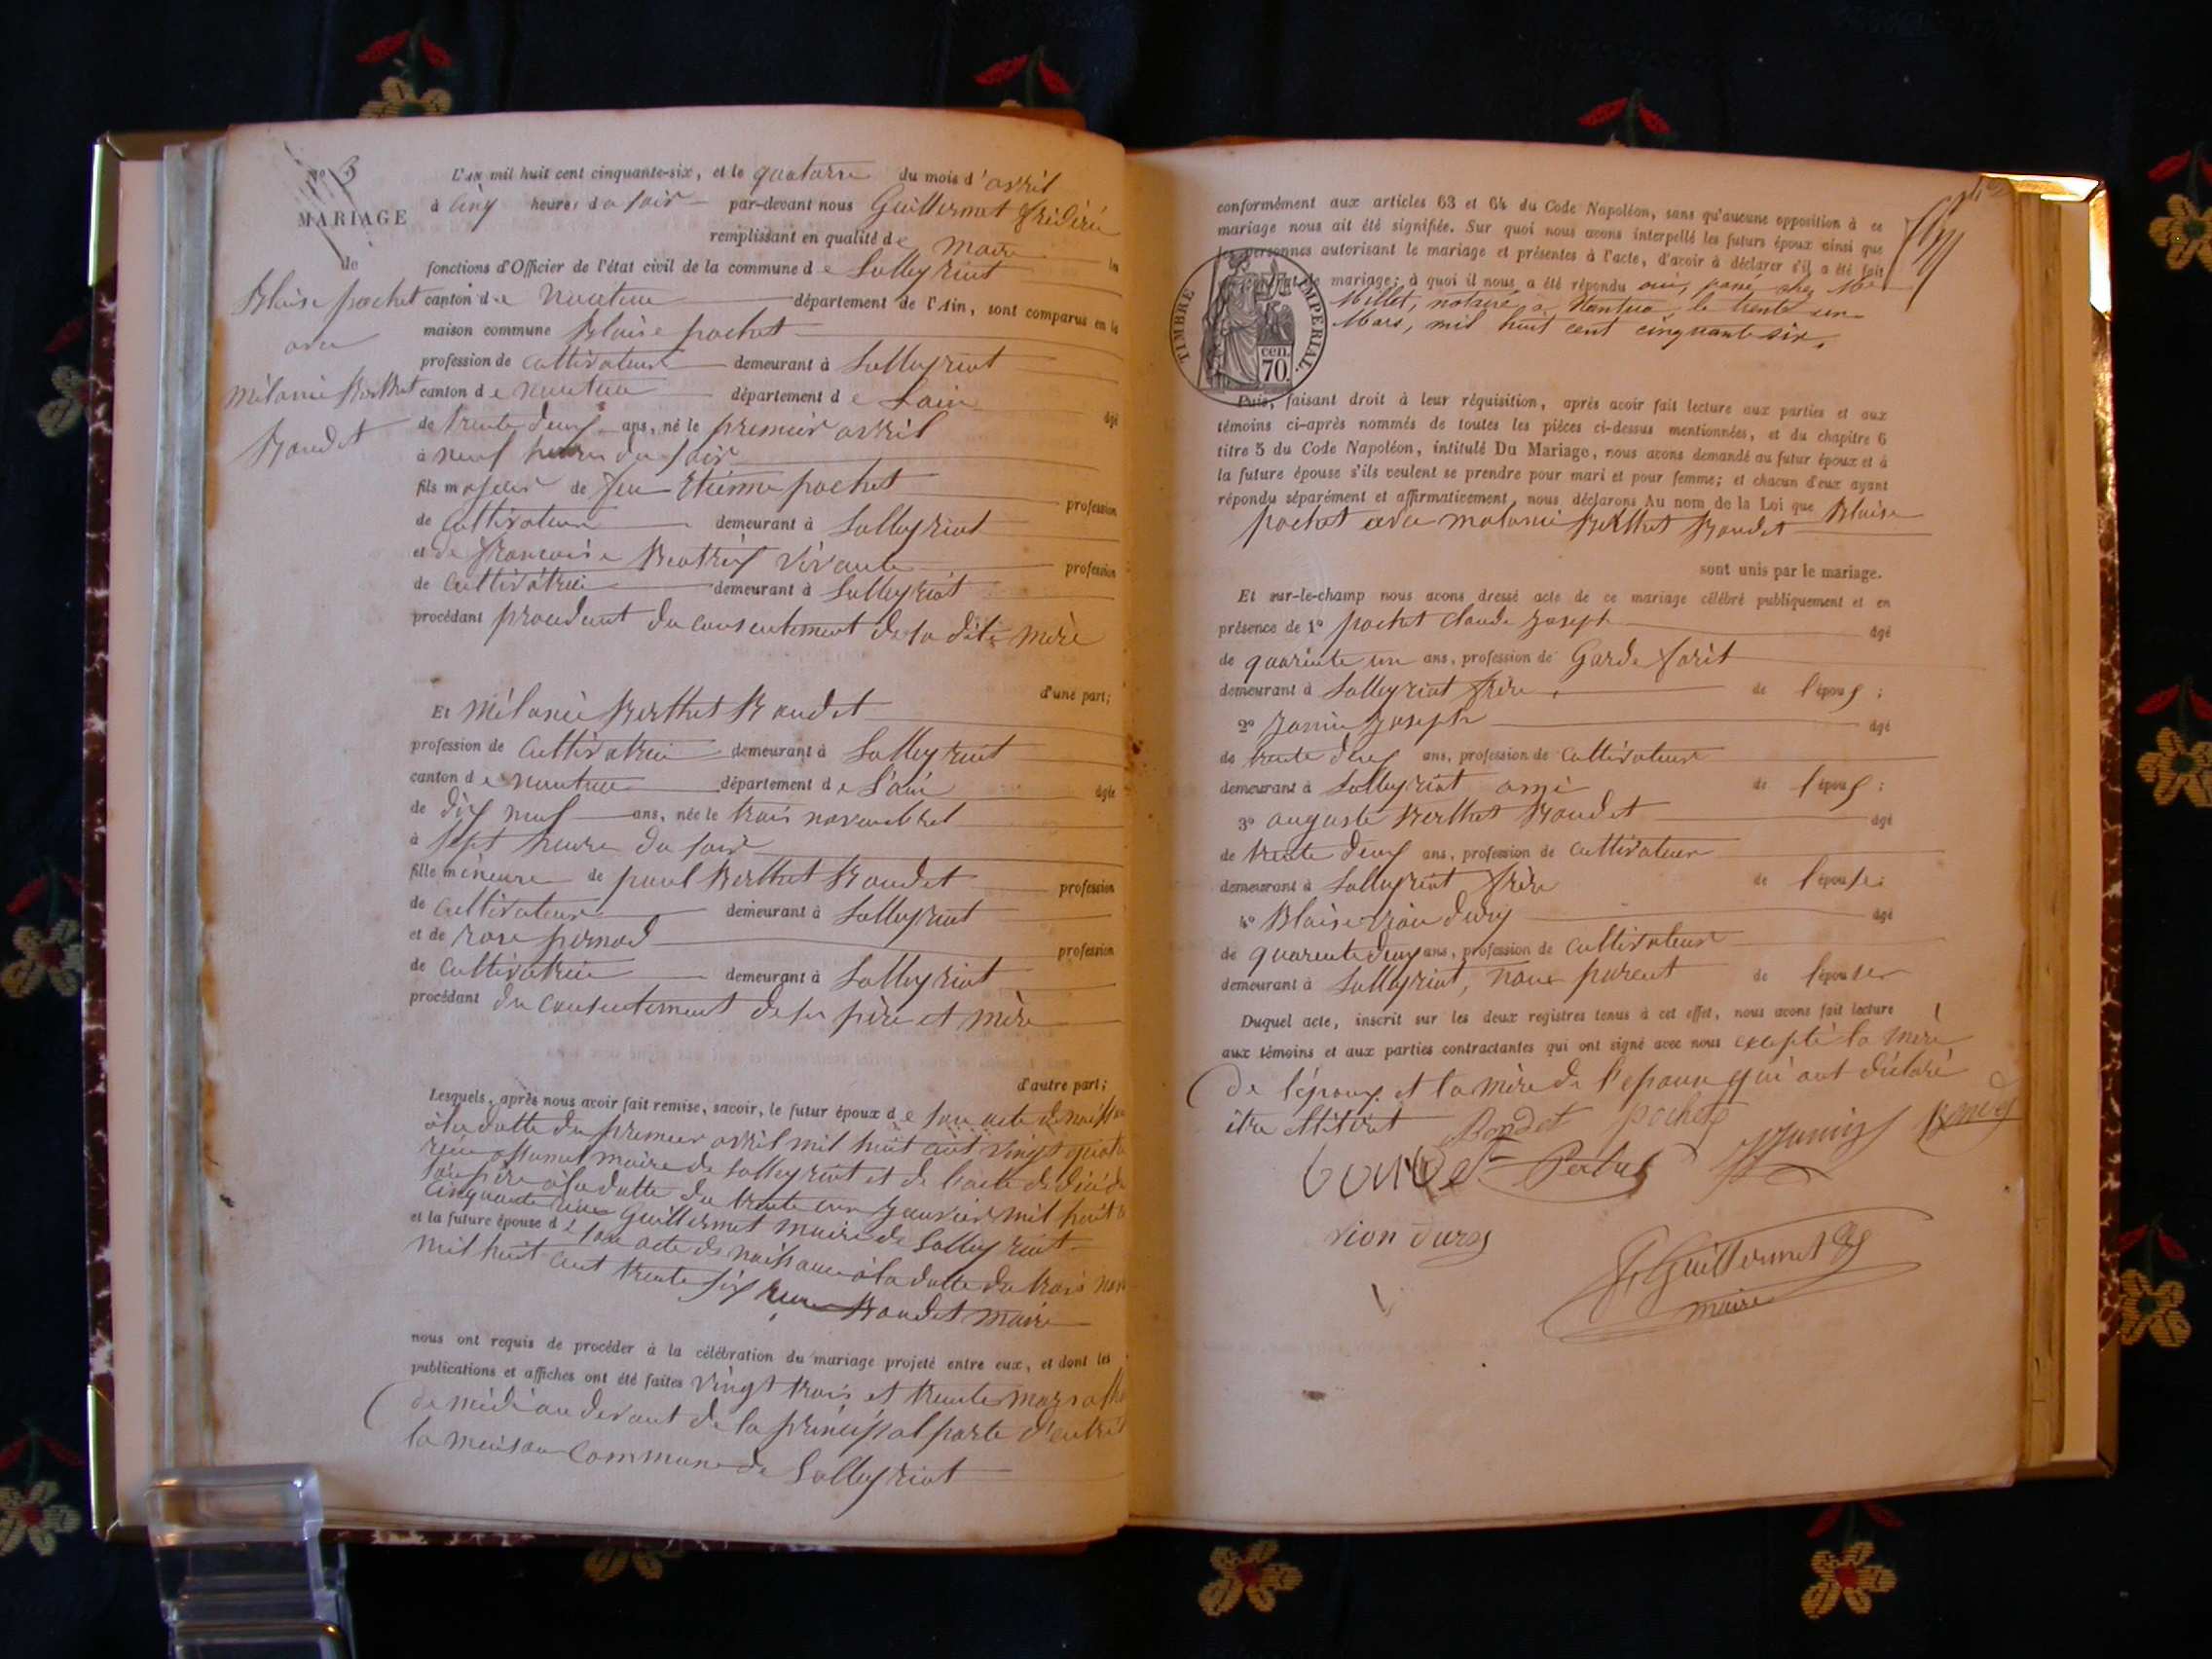 N° 3
MARIAGE
de
Blaise pochet
avec
Mélanie Berthet
Bondet
L'AN mil huit cent cinquante-six, et le quatorze du mois d'avril
à cinq heures du soir par-devant nous Guillermet frédéric
remplissant en qualité de maire les
fonctions d'Officier de l'état civil de la commune de Lalleyriat
canton de nantua département de l'Ain, sont comparus en la
maison commune Blaise pochet
profession de cultivateur demeurant à Lalleyriat
canton de nantua département de Lain âgé
de trente deux ans, né le premier avril
à neuf heures du soir
fils majeur de feu Etienne pochet profession
de cultivateur demeurant à Lalleyriat
et de françoise Beatrix vivante profession
de cultivatrice demeurant à Lalleyriat
procédant procedant du consentement de la dite mère
d'une part;
Et Mélanie Berthet Bondet
profession de cultivatrice demeurant à Lalleyriat
canton de nantua département de L'ain âgée
de dix neuf ans, née le trois novembre
à sept heures du soir
fille mineure de paul Berthet Bondet profession
de cultivateur demeurant à Lalleyriat
et de rose pernod profession
de cultivatrice demeurant à Lalleyriat
procédant du consentement de ses père et mère
d'autre part;
Lesquels, après nous avoir fait remise, savoir, le futur époux de son acte de naissan
à la datte du premier avril mil huit cent vingt quat
maire de Lalleyriat et de l'acte de décé de
son père à la datte du trente un janvier mil huit c
cinquante Guillermet maire de Lalleyriat
et la future épouse de son acte de naissance à la datte du trois nov
mil huit cent trente six Bondet maire
nous ont requis de procéder à la célébration du mariage projeté entre eux, et dont les
publications et affiches ont été faites vingt trois et trente mars
de midi au devant de la principal porte d'entré
la maison commune de Lalleyriat
conformément aux articles 63 et 64 du Code Napoléon, sans qu'aucune opposition à ce
mariage nous ait été signifiée. Sur quoi nous avons interpellé les futurs époux ainsi que
les personnes autorisant le mariage et présentes à l'acte, d'avoir à déclarer s'il a été fait
contrat de mariage; à quoi il nous a été répondu oui, passé chez Me
Millet, notaire à Nantua, le trente un
Mars, mil huit cent cinquante six.
TIMBRE IMPERIAL.
cen.
70.
Puis, faisant droit à leur réquisition, après avoir fait lecture aux parties et aux
témoins ci-après nommés de toutes les pièces ci-dessus mentionnées, et du chapitre 6
titre 5 du Code Napoléon, intitulé Du Mariage, nous avons demandé au futur époux et à
la future épouse s'ils veulent se prendre pour mari et pour femme; et chacun d'eux ayant
répondu séparément et affirmativement, nous déclarons Au nom de la Loi que Blaise
pochet avec malanie Berthet Bondet
sont unis par le mariage.
Et sur-le-champ nous avons dressé acte de ce mariage célébré publiquement et en
présence de 1° pochet claude joseph âgé
de quarante un ans, profession de Garde forêt
demeurant à Lalleyriat frère de l'époux;
2° Janin Joseph âgé
de trente deux ans, profession de cultivateur
demeurant à Lalleyriat ami de l'époux;
3° auguste Berthet Bondet âgé
de trente deux ans, profession de cultivateur
demeurant à Lalleyriat frère de l'épouse;
4° Blaise vion dury âgé
de quarente deux ans, profession de cultivateur
demeurant à Lalleyriat, non parent de l'épouse
Duquel acte, inscrit sur les deux registres tenus à cet effet, nous avons fait lecture
aux témoins et aux parties contractantes qui ont signé avec nous excepté la mère
de l'époux et la mère de l'epouse qui ont déclaré
être illitiret
Bondet pochet JJanin Bondet
bondet
vion dury
F Guillermet
maire